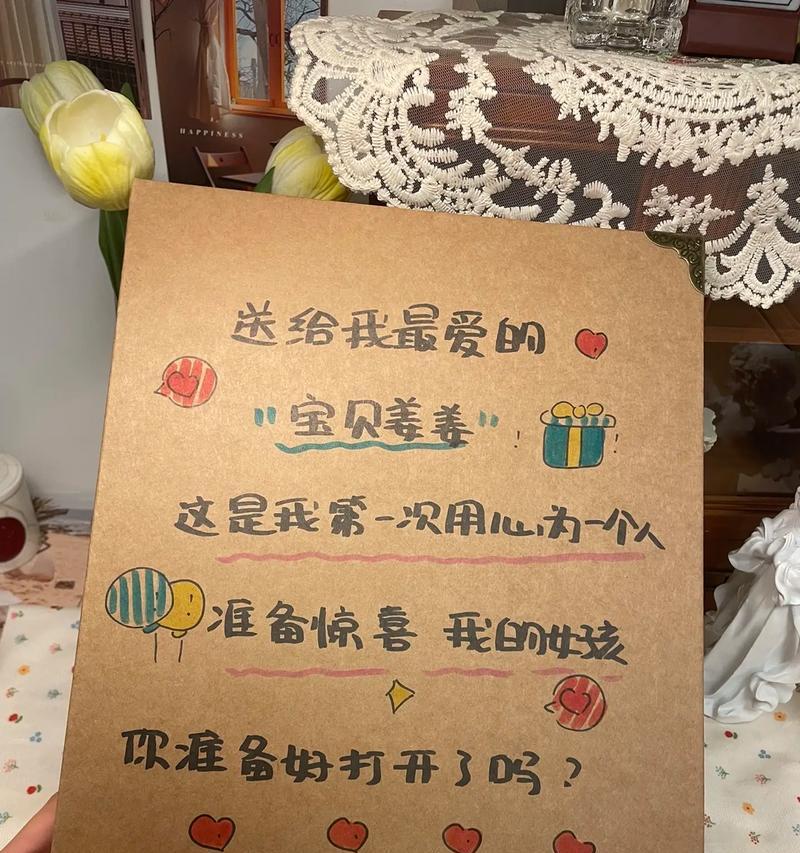 HAPPINESS
送给我最爱的
"宝贝姜姜"
这是我第一次用心为一个人
准备惊喜 我的女孩
你准备好打开了吗?